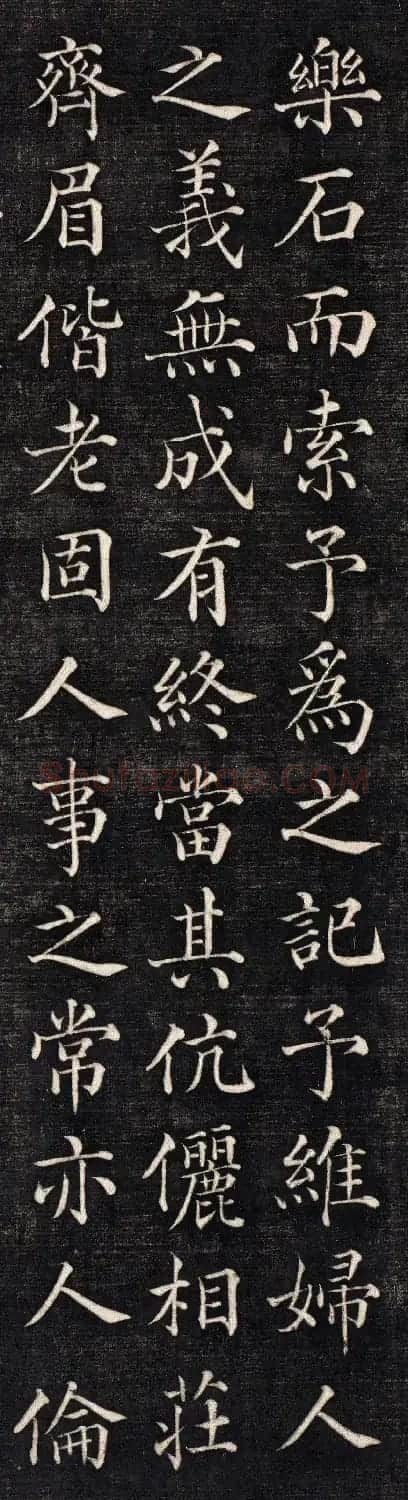 樂石而索予爲之記予維婦人
之義無成有終當其伉儷相莊
齊眉偕老固人事之常亦人倫